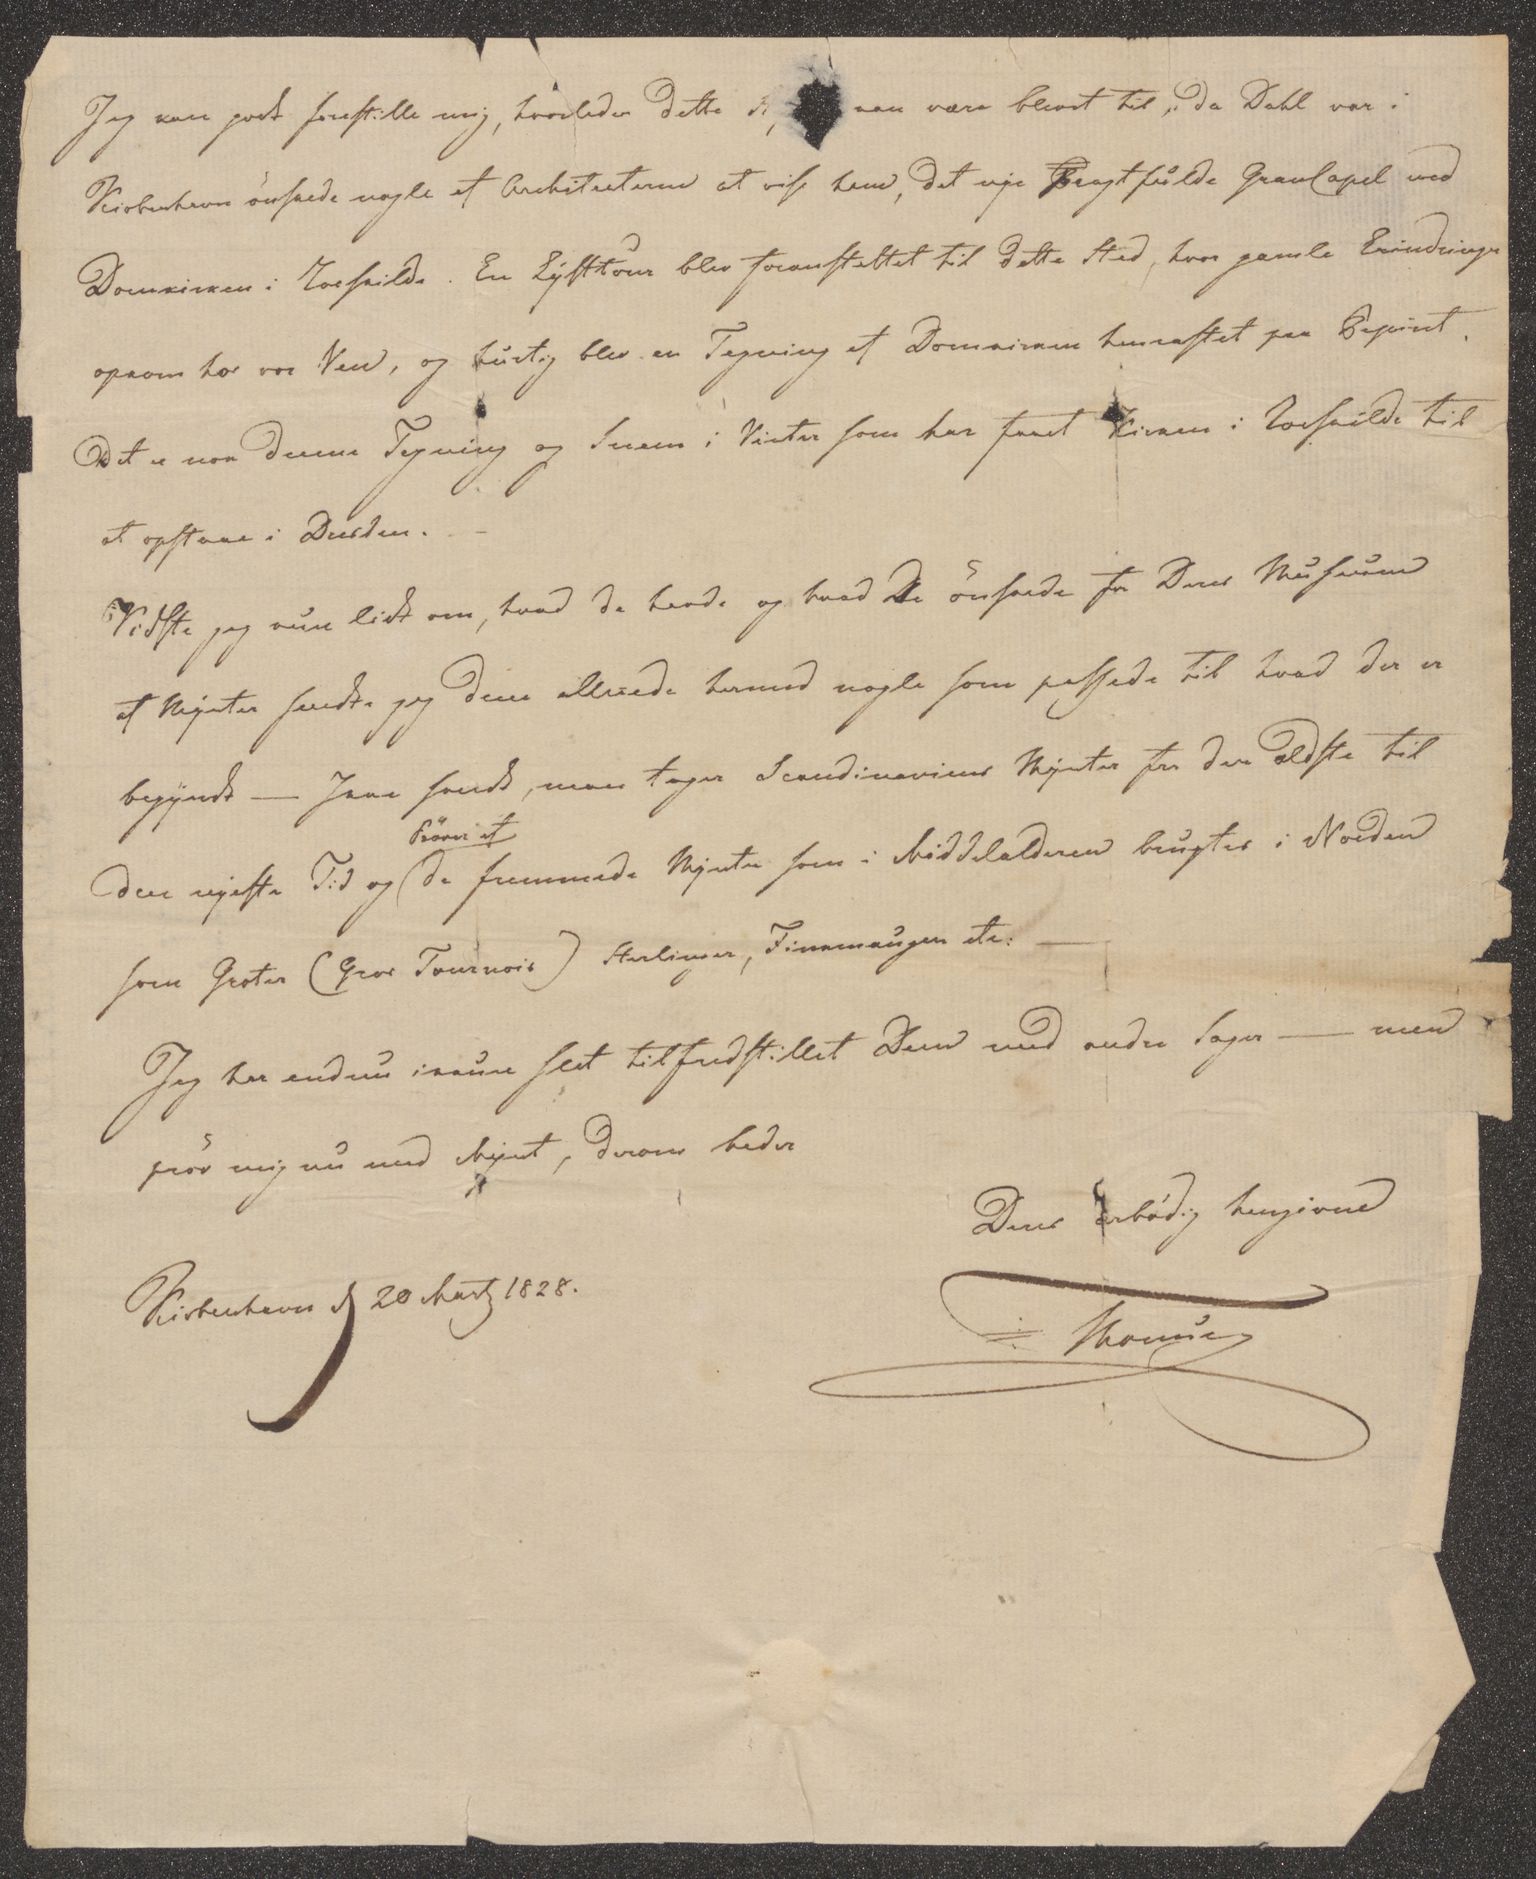 Jeg kan godt forestille mig, hvorledes dette kan være blevet til, da Dahl var i
Kiøbenhavn önskede nogle af Architecterne at vise ham, det nye Pragtfulde GravCapel ved
Domkirken i Roeskilde. En Lysttour blev foranstaltet til dette Sted, hvor gamle Erindringer
opkom hos vor Ven, og hurtig blev en Tegning af Domkirken henkastet paa Papiret.
Det er nok denne Tegning og Sneen i Vinter som har faaet Kirken i Roeskilde til
at opstaae i Dresden. —
Vidste jeg kun lidt om, hvad de havde og hvad De önskede for Deres Museum
af Mynter sendte jeg Dem allerede hermed nogle som passede til hvad der er
begyndt — Jeg sendt, man tager Scandinaviens Mynter fra den ældste til
Pröver af
den nyeste Tid og de fremmede Mynter som i Middelalderen brugtes i Norden
som Groter (Gros Tournois) Sterlinger, Finkenaugen etc: —
Jeg har endnu ikkun slet tilfredstillet Dem med andre Sager — men
pröv mig nu med Mynt, derom beder
Deres ærbödig hengivne
Thomsen
Kiøbenhavn d 20 Martz 1828.